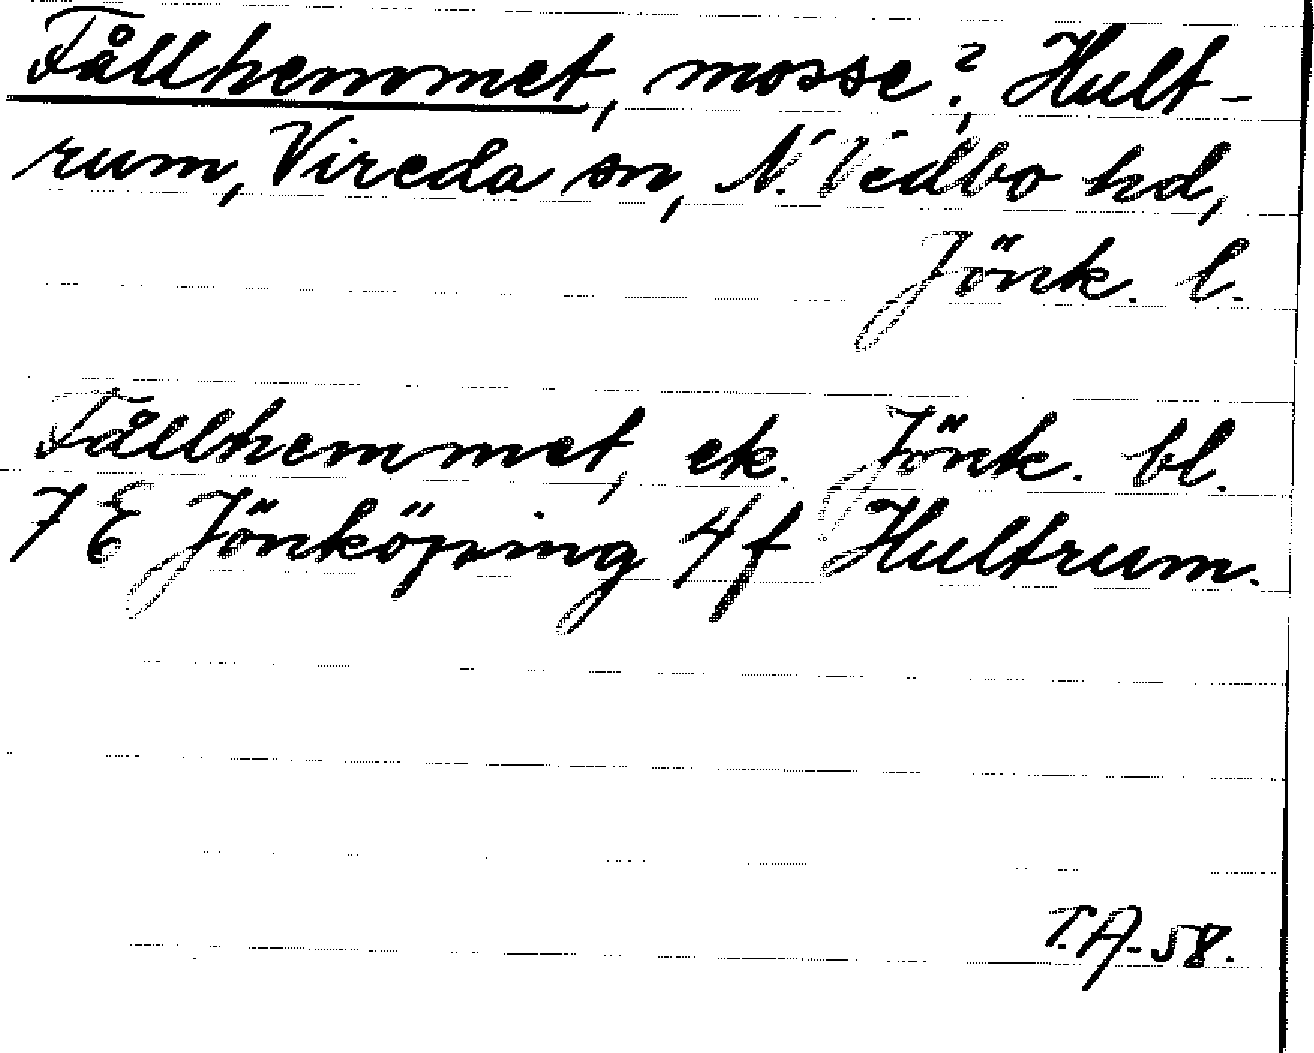 Fållhemmet, mosse?, Hult-
rum, Vireda sn, N. Vedbo hd,
Jönk. l.
Fållhemmet, ek. Jönk. bl.
7 E Jönköping 4 f Hultrum.
T.A. 58.